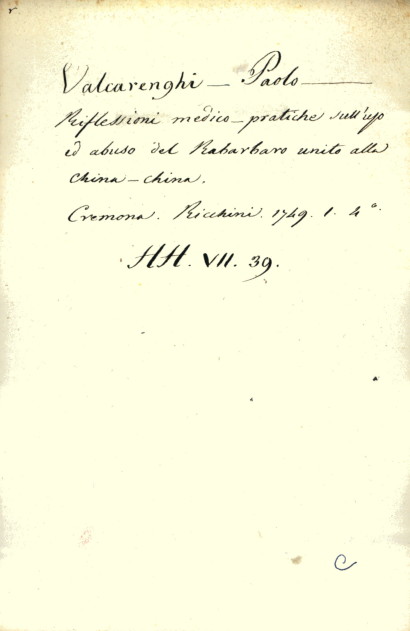 Valcarenghi — Paolo —
Riflessioni medico-pratiche sull'uso
ed abuso del Rabarbaro unito alla
china-china.
Cremona. Ricchini. 1749. 1. 4°.
HH. VII. 39.
C